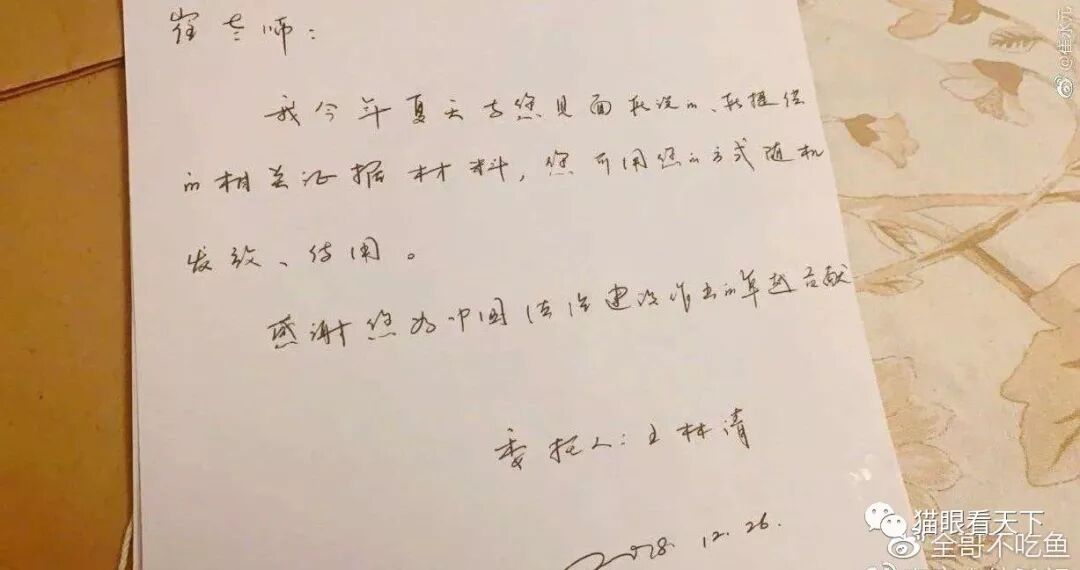 崔老师：
我今年夏天与您见面所说的、所提供
的相关证据材料，您可用您的方式随机
发放、使用。
感谢您为中国法治建设作出的卓越贡献
委托人：王林清
2018. 12. 26.
@崔永元
猫眼看天下
全哥不吃鱼